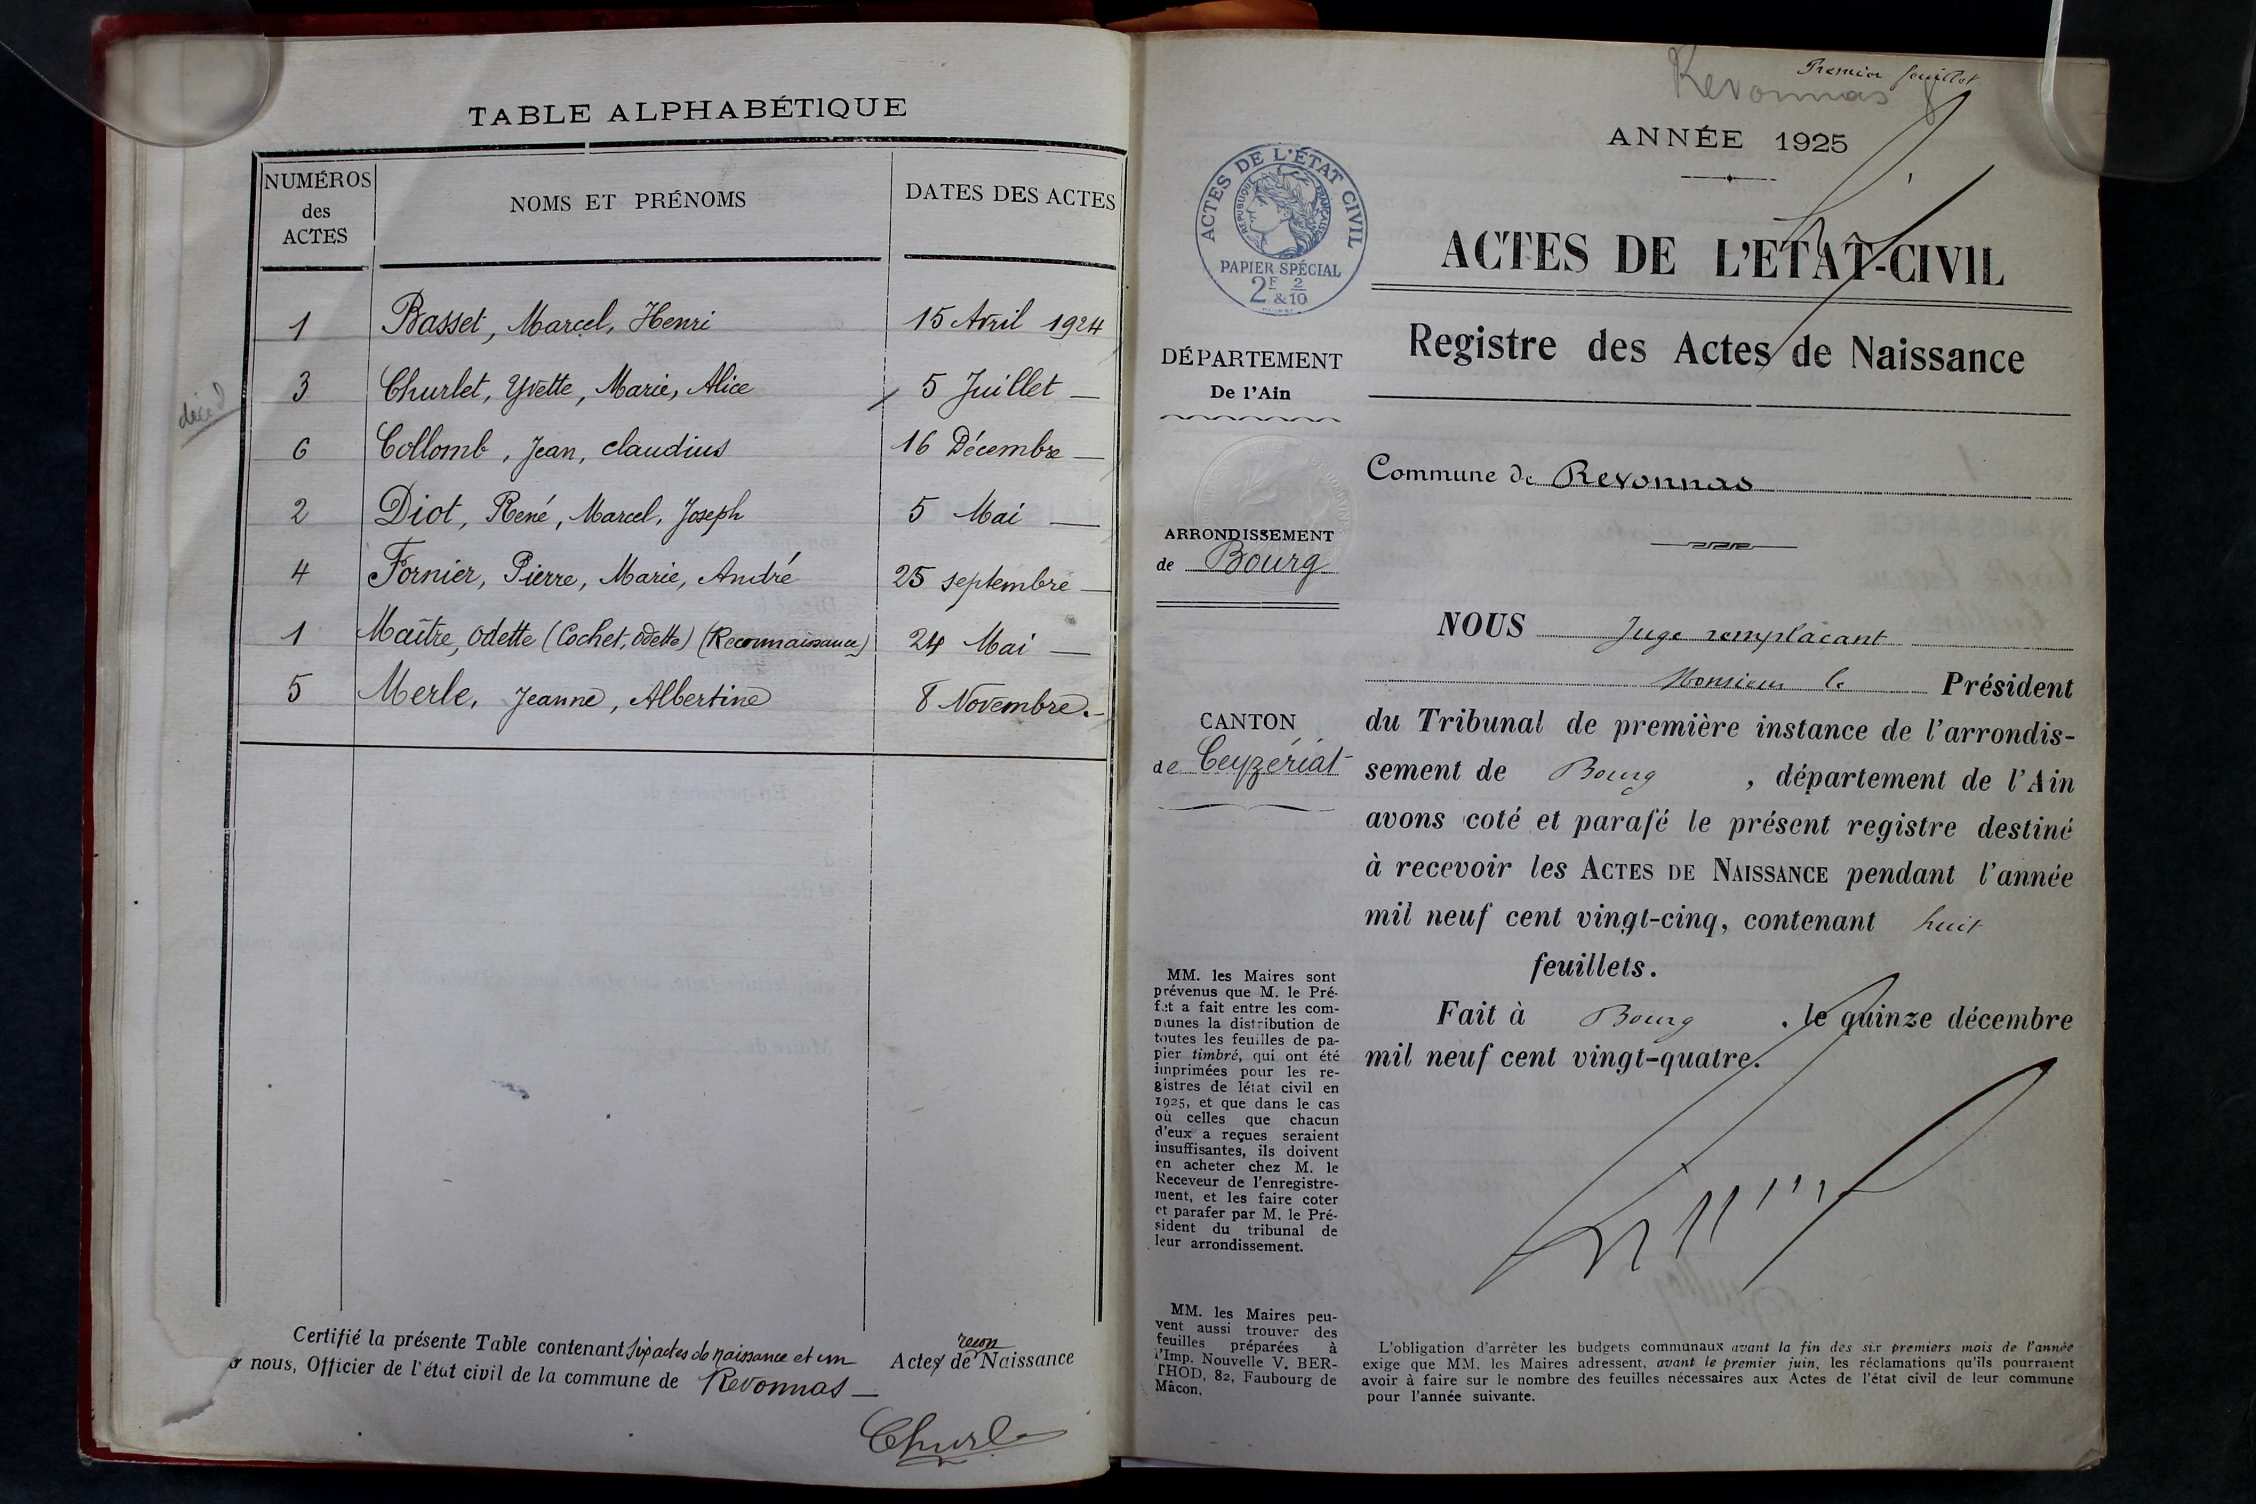 TABLE ALPHABÉTIQUE
NUMÉROS des ACTES NOMS ET PRÉNOMS DATES DES ACTES
1 Basset, Marcel, Henri 15 Avril 1924
3 Churlet, Yvette, Marie, Alice 5 Juillet —
6 Collomb, Jean, Claudius 16 Décembre —
2 Diot, René, Marcel, Joseph 5 Mai —
4 Fornier, Pierre, Marie, André 25 septembre —
1 Maître, Odette (Cochet, Odette) (Reconnaissance) 24 Mai —
5 Merle, Jeanne, Albertine 8 Novembre. -
Certifié la présente Table contenant six actes de naissance et un recon Actes de Naissance
nous, Officier de l'état civil de la commune de Revonnas —
Churle
Premier feuillet
Revonnas
ANNÉE 1925
ACTES DE L'ÉTAT CIVIL
RÉPUBLIQUE FRANÇAISE
PAPIER SPÉCIAL
2F & 2/10
ACTES DE L'ETAT-CIVIL
Registre des Actes de Naissance
DÉPARTEMENT
De l'Ain
Commune de Revonnas
ARRONDISSEMENT
de Bourg
CANTON
de Ceyzériat
NOUS Juge remplaçant
Monsieur le Président
du Tribunal de première instance de l'arrondis-
sement de Bourg, département de l'Ain
avons coté et parafé le présent registre destiné
à recevoir les ACTES DE NAISSANCE pendant l'année
mil neuf cent vingt-cinq, contenant huit
feuillets.
Fait à Bourg, le quinze décembre
mil neuf cent vingt-quatre.
MM. les Maires sont
prévenus que M. le Pré-
fet a fait entre les com-
munes la distribution de
toutes les feuilles de pa-
pier timbré, qui ont été
imprimées pour les re-
gistres de létat civil en
1925, et que dans le cas
où celles que chacun
d'eux a reçues seraient
insuffisantes, ils doivent
en acheter chez M. le
Receveur de l'enregistre-
ment, et les faire coter
et parafer par M. le Pré-
sident du tribunal de
leur arrondissement.
MM. les Maires peu-
vent aussi trouver des
feuilles préparées à
l'Imp. Nouvelle V. BER-
THOD, 82, Faubourg de
Mâcon.
L'obligation d'arrêter les budgets communaux avant la fin des six premiers mois de l'année
exige que MM. les Maires adressent, avant le premier juin, les réclamations qu'ils pourraient
avoir à faire sur le nombre des feuilles nécessaires aux Actes de l'état civil de leur commune
pour l'année suivante.